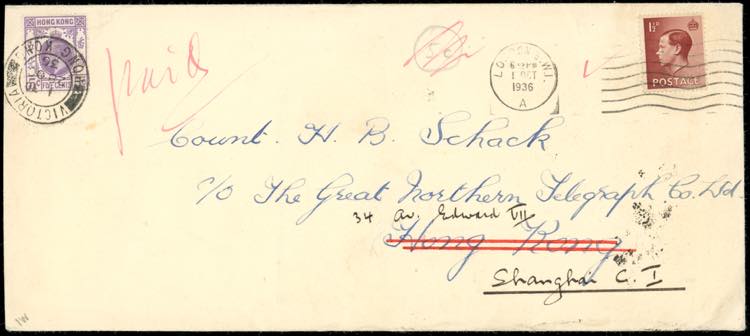 HONG KONG
FIVE CENTS
VICTORIA
HONG KONG
paid
LONDON. W.1.
1 OCT
1936
A
1½ᴰ
POSTAGE
Count. H. B. Schack
c/o The Great Northern Telegraph Co. Ltd.
34 Av. Edward VII
Hong Kong
Shanghai C. I
IW